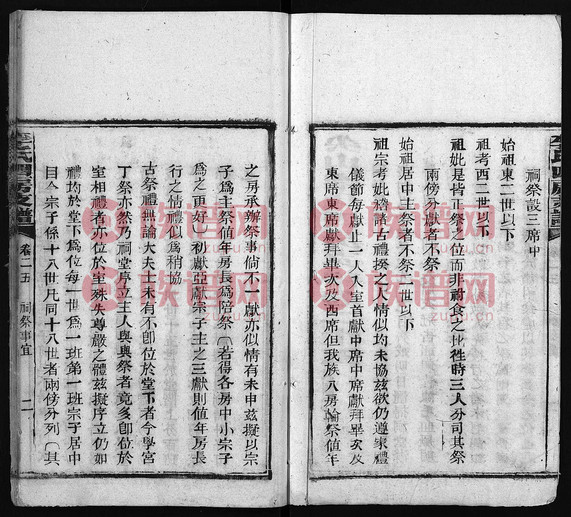 祠祭設三席中
始祖東二世以下
祖考西二世以下
祖妣是皆正祭之位而非祔食之比牲時三人分司其祭
兩傍分獻者不祭
始祖居中主祭者不祭二世以下
祖宗考妣於古禮揆之人情似均未協茲欲仍遵家禮
儀節每獻止一人入室首獻中席中席獻拜畢次及
東席東席獻拜畢次及西席但我族八房論祭值年
之房承辦祭事倘不一獻亦似情有未申茲擬以宗
子爲主祭值年房長爲陪祭（若得各房中小宗子
爲之更好）初獻亞獻宗子主之三獻則值年房長
行之情禮似爲稍協
古祭禮無論大夫士未有不卽位於堂下者今學宮
丁祭亦然乃祠堂序立主人與與祭者竟多卽位於
室相禮者亦位於室殊失尊嚴之體茲擬序立仍如
禮均於堂下爲位每一世爲一班第一班宗子居中
目今宗子係十八世凡同十八世者兩傍分列（其
卷二十五
祠祭事宜
二
族谱网
族谱网
族谱网
族谱网